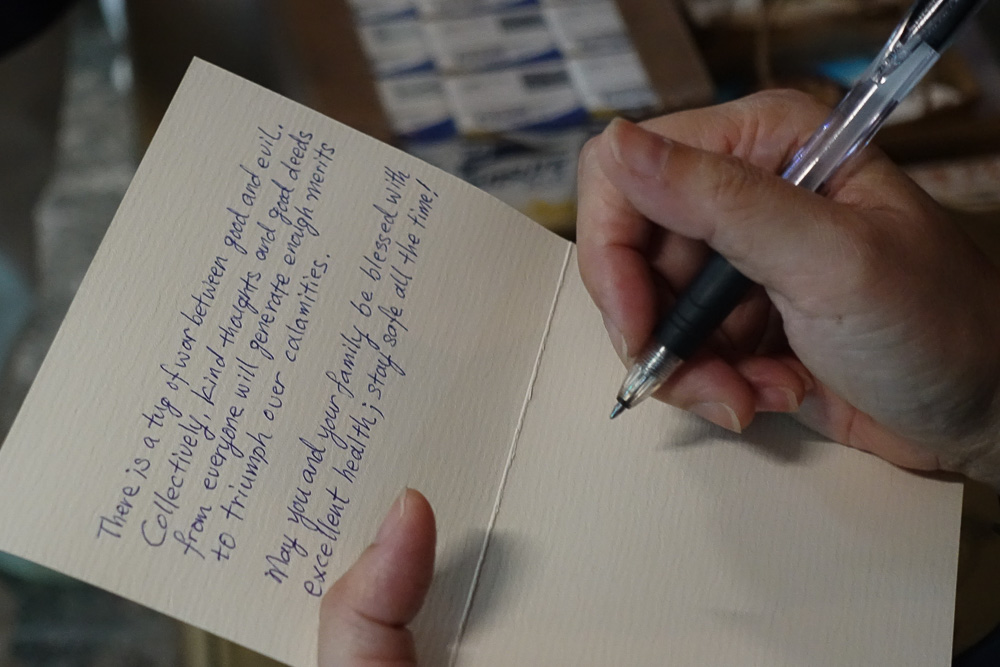 There is a tug of war between good and evil.
Collectively, kind thoughts and good deeds
from everyone will generate enough merits
to triumph over calamities.
May you and your family be blessed with
excellent health; stay safe all the time!